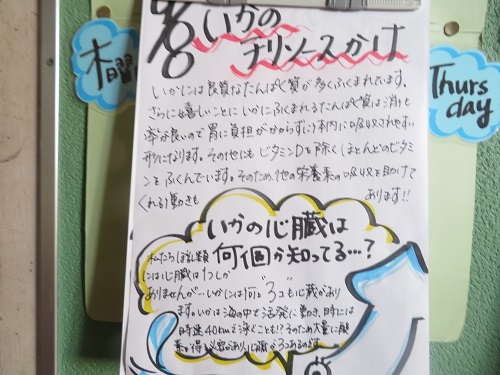 9/8 いかの
チリソースかけ
木曜
Thurs
day
いかには良質なたんぱく質が多くふくまれています。
さらに嬉しいことにいかにふくまれるたんぱく質は消化
率が良いので胃に負担がかからずに体内に吸収されやすい
形になります。その他にもビタミンDを除くほとんどのビタミ
ンをふくんでいます。そのため、他の栄養素の吸収を助けて
くれる働きも あります!!
いかの心臓は
何個か知ってる…?
私たちほ乳類
には心臓は1つしか
ありませんが…いかには何と"3"コも心臓があり
ます。いかは海の中で活発に動き、時には
時速40kmで泳ぐことも!?そのため大量に酸
素を得る必要があり、心臓が3つあるのです